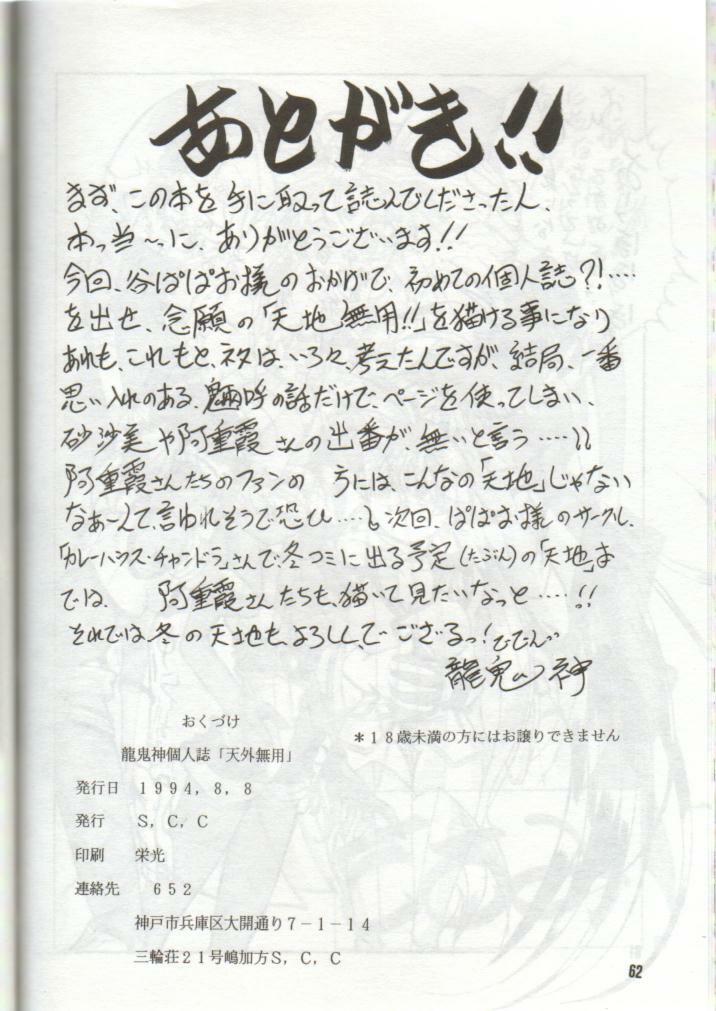 あとがき!!
まず、この本を手に取って読んでくださった人、
本っ当〜っに、ありがとうございます!!
今回、谷ぱぱお様のおかげで、初めての個人誌?!‥‥
を出せ、念願の「天地無用!!」を描ける事になり
あれも、これもと、ネタは、いろ々、考えたんですが、結局、一番
思い入れのある、魎呼の話だけで、ページを使ってしまい、
砂沙美や阿重霞さんの出番が、無いと言う‥‥
阿重霞さんたちのファンの 方には、こんなの「天地」じゃない
なぁーんて、言われそうで恐ひ‥‥で次回、ぱぱお様のサークル、
「カレーハウス・チャンドラ」さんで、冬コミに出る予定(たぶん)の「天地」本
では、 阿重霞さんたちも、描いて見たいなっと‥‥!!
それでは冬の天地も、よろしく、でござるっ!
龍鬼神
おくづけ
＊18歳未満の方にはお譲りできません
龍鬼神個人誌「天外無用」
発行日 1994,8,8
発行 S,C,C
印刷 栄光
連絡先 652
神戸市兵庫区大開通り7−1−14
三輪荘21号嶋加方S,C,C
62